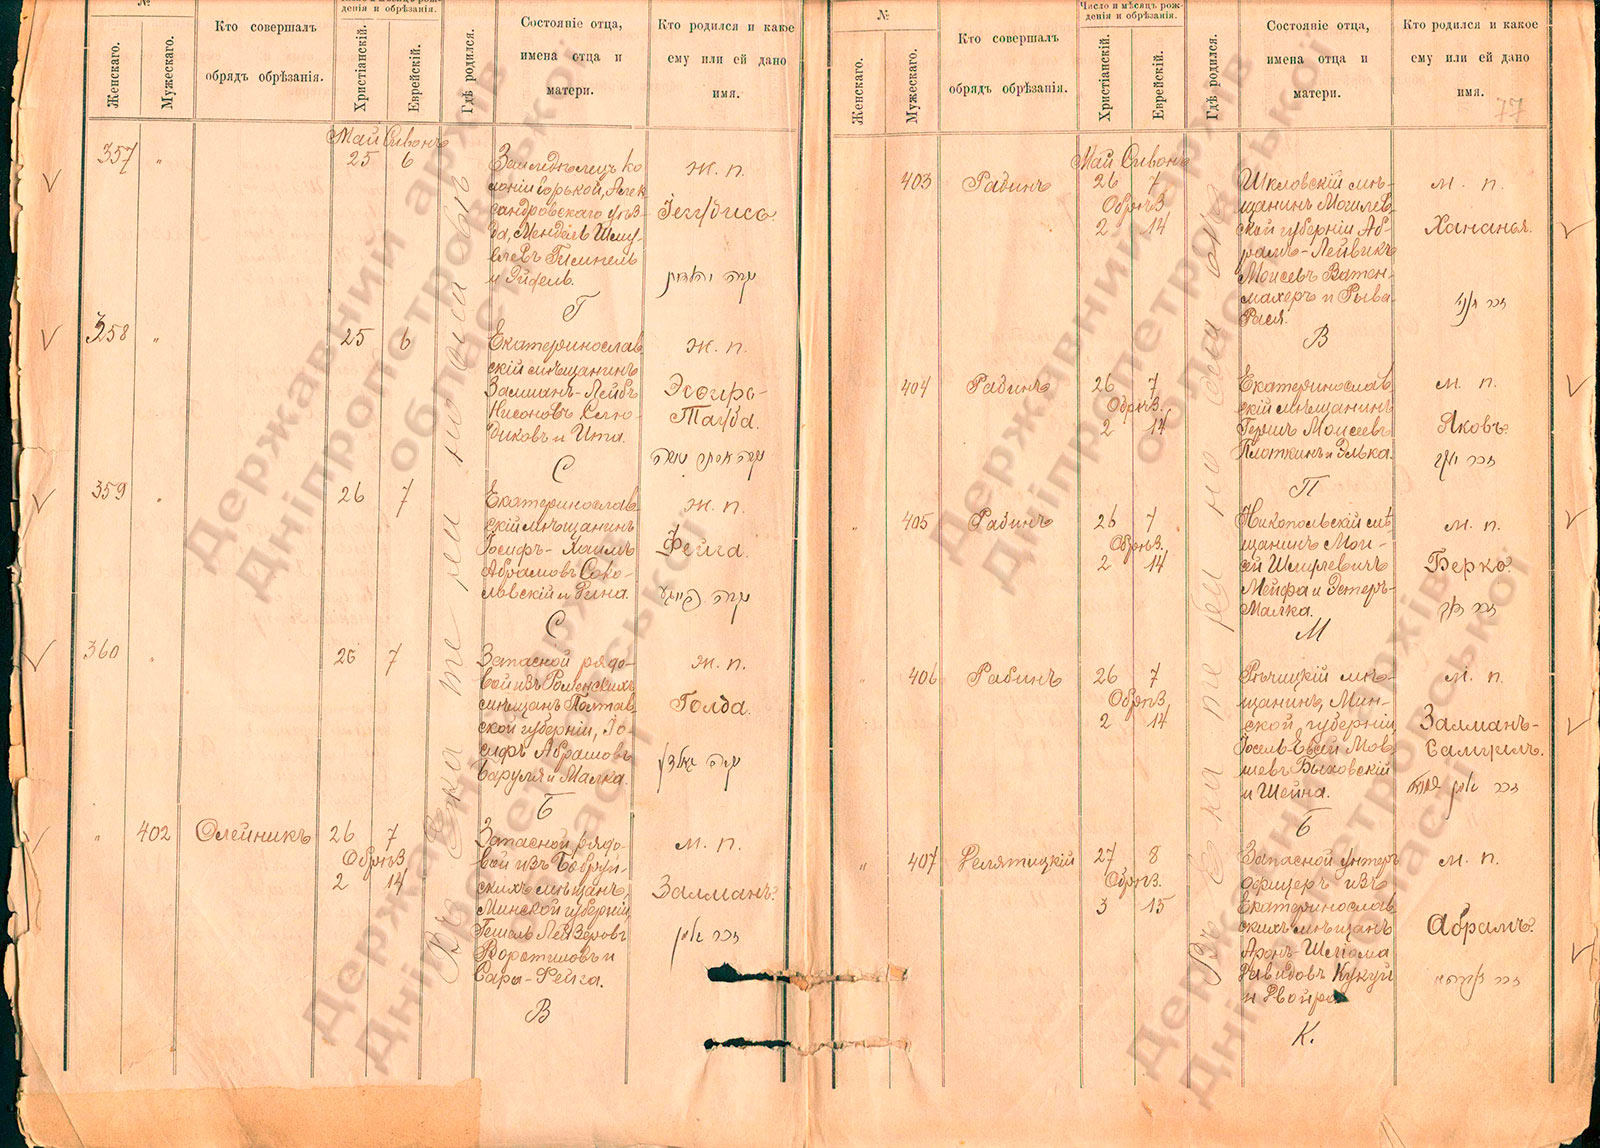 №
Женскаго.
Мужескаго.
Кто совершалъ
обрядъ обрѣзанія.
Число и мѣсяцъ рож-
денія и обрѣзанія.
Христіанскій.
Еврейскій.
Гдѣ родился.
Состояніе отца,
имена отца и
матери.
Кто родился и какое
ему или ей дано
имя.
Май Сивонъ
357 „ 25 6
Земледѣлецъ ко-
лоніи Горькой, Алек-
сандровскаго уѣз-
да, Мендель Шму-
левъ Гимпель
и Эйдель.
Г
ж. п.
358 „ 25 6
Екатеринослав
скій мѣщанинъ
Залманъ-Лейбъ
Нисоновъ
и Ита.
С
ж. п.
Эсѳирь-
Тауба.
359 „ 26 7
Екатеринослав
скій мѣщанинъ
Іосифъ-Хаимъ
Абрамовъ Соко-
ловскій и Дина.
С
ж. п.
Фейга.
360 „ 26 7
Запасной рядо-
вой изъ Роменскихъ
мѣщанъ Полтав
ской губерніи, Іо-
сифъ Абрамовъ
и Малка.
Б
ж. п.
Голда.
„ 402 Олейникъ 26 7
Обрѣз.
2 14
Запасной рядо-
вой изъ Бобруй-
скихъ мѣщанъ,
Минской губерніи,
Гешель Лейзеровъ
Воротиловъ и
Сара-Фейга.
В
м. п.
Залманъ.
Въ Ека те ри но сла вѣ
№
Женскаго.
Мужескаго.
Кто совершалъ
обрядъ обрѣзанія.
Число и мѣсяцъ рож-
денія и обрѣзанія.
Христіанскій.
Еврейскій.
Гдѣ родился.
Состояніе отца,
имена отца и
матери.
Кто родился и какое
ему или ей дано
имя.
77
Май Сивонъ
403 Рабинъ 26 7
Обрѣз
2 14
Шкловскій мѣ-
щанинъ Могилев
ской губерніи Аб-
рамъ-Лейвикъ
Моисеевъ Ватен-
махеръ и Рыва-
Рася.
В
м. п.
Хананья.
404 Рабинъ 26 7
Обрѣз.
2 14
Екатеринослав
скій мѣщанинъ
Гершъ Моисеевъ
Плоткинъ и Элька.
П
м. п.
Яковъ.
„ 405 Рабинъ 26 7
Обрѣз.
2 14
Никопольскій мѣ
щанинъ Мои-
сей Шмулевичъ
Мейфа и Эстеръ-
Малка.
М
м. п.
Берко.
„ 406 Рабинъ 26 7
Обрѣз.
2 14
Рѣчицкій мѣ-
щанинъ, Мин-
ской губерніи,
Мов
шевъ Быховскій
и Шейна.
Б
м. п.
Залманъ-
Самуилъ.
„ 407 Релятицкій 27 8
Обрѣз.
3 15
Запасной унтеръ
офицеръ изъ
Екатеринослав
скихъ мѣщанъ
Аронъ-Шліома
Давидовъ Кукуй
и Двойра
К.
м. п.
Абрамъ.
Въ Ека те ри но сла вѣ
Державний архів
Дніпропетровської
області
Державний архів
Дніпропетровської
області
Державний архів
Дніпропетровської
області
Державний архів
Дніпропетровської
області